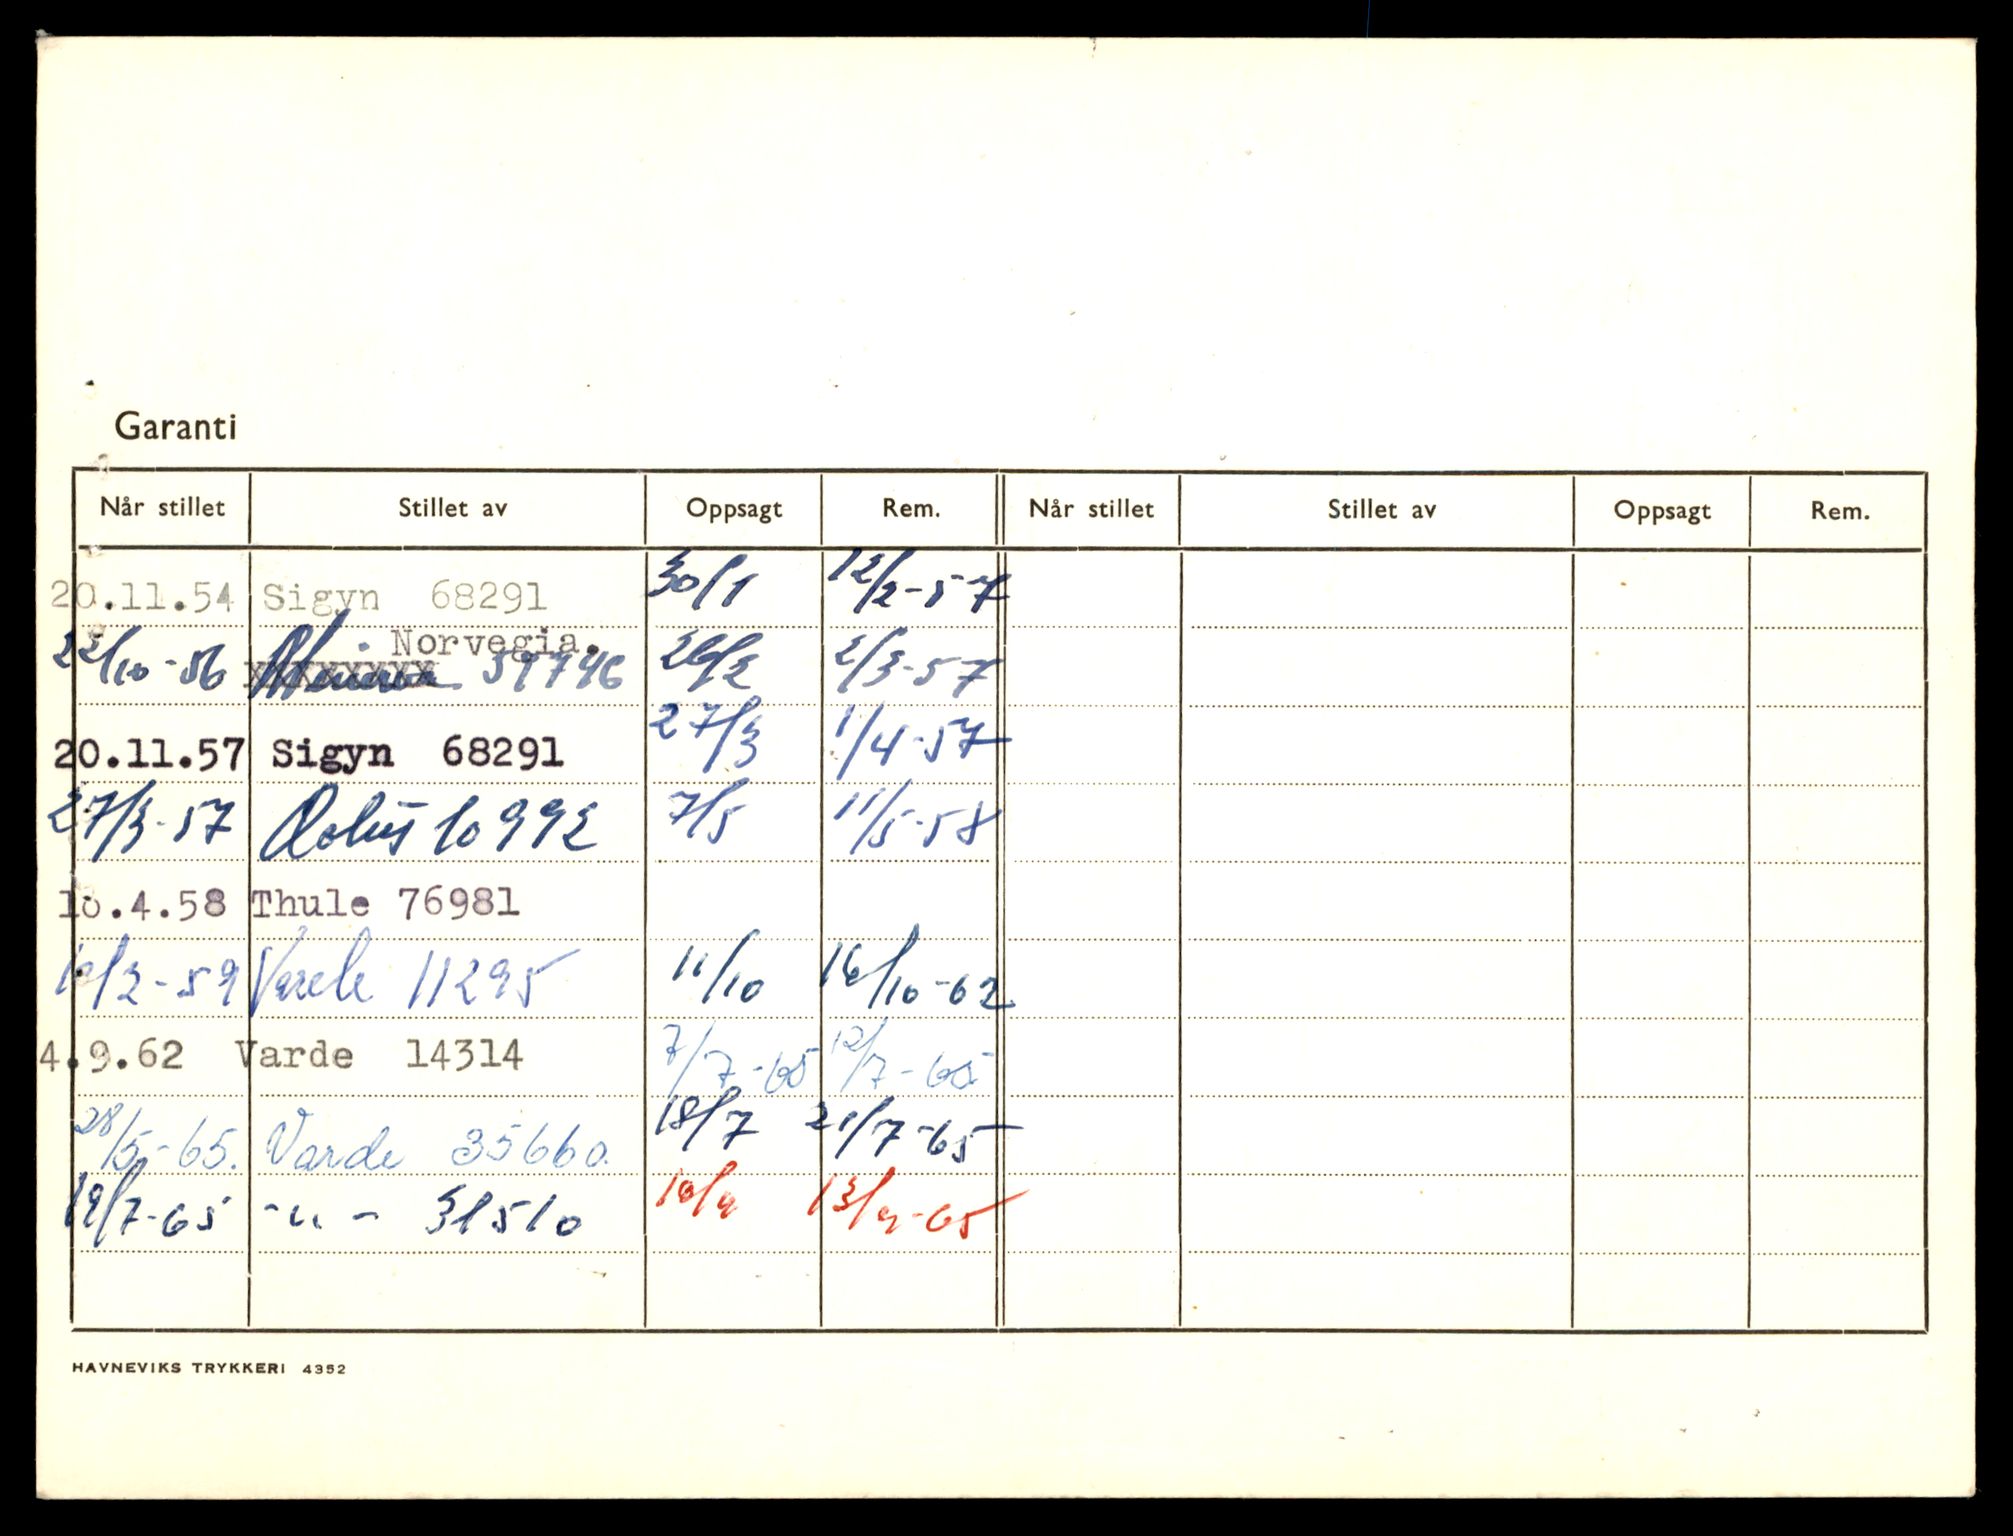 Garanti
Når stillet Stillet av Oppsagt Rem. Når stillet Stillet av Oppsagt Rem.
20.11.54 Sigyn 68291 30/1 12/2-57
Norvegia.
22/10-56 59746 26/2 2/3-57
20.11.57 Sigyn 68291 27/3 1/4-57
27/3-57 10992 7/5 11/5-58
18.4.58 Thule 76981
10/2-59 Varde 11295 11/10 16/10-62
4.9.62 Varde 14314 7/7-65 12/7-65
28/5-65. Varde 35660. 18/7 21/7-65
19/7-65 -"- 31510 10/9 13/9-65
HAVNEVIKS TRYKKERI 4352